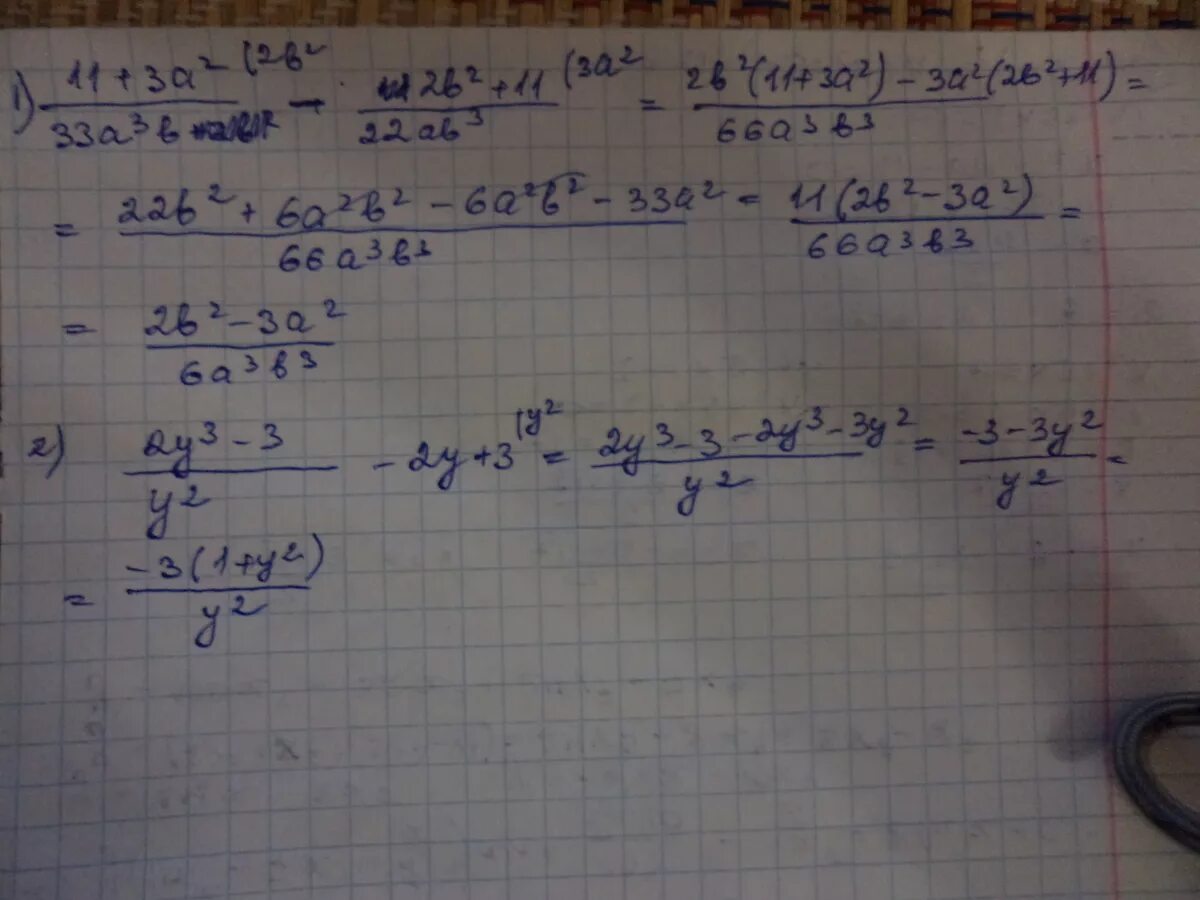 1) (11+3a²)/(33a³b) (2b² − (2b²+11)/(22ab³) (3a² = (2b²(11+3a²)−3a²(2b²+11))/(66a³b³) =
= (22b²+6a²b²−6a²b²−33a²)/(66a³b³) = 11(2b²−3a²)/(66a³b³) =
= (2b²−3a²)/(6a³b³)
2) (2y³−3)/(y²) −2y+3 (y² = (2y³−3−2y³−3y²)/(y²) = (−3−3y²)/(y²) =
= −3(1+y²)/(y²)